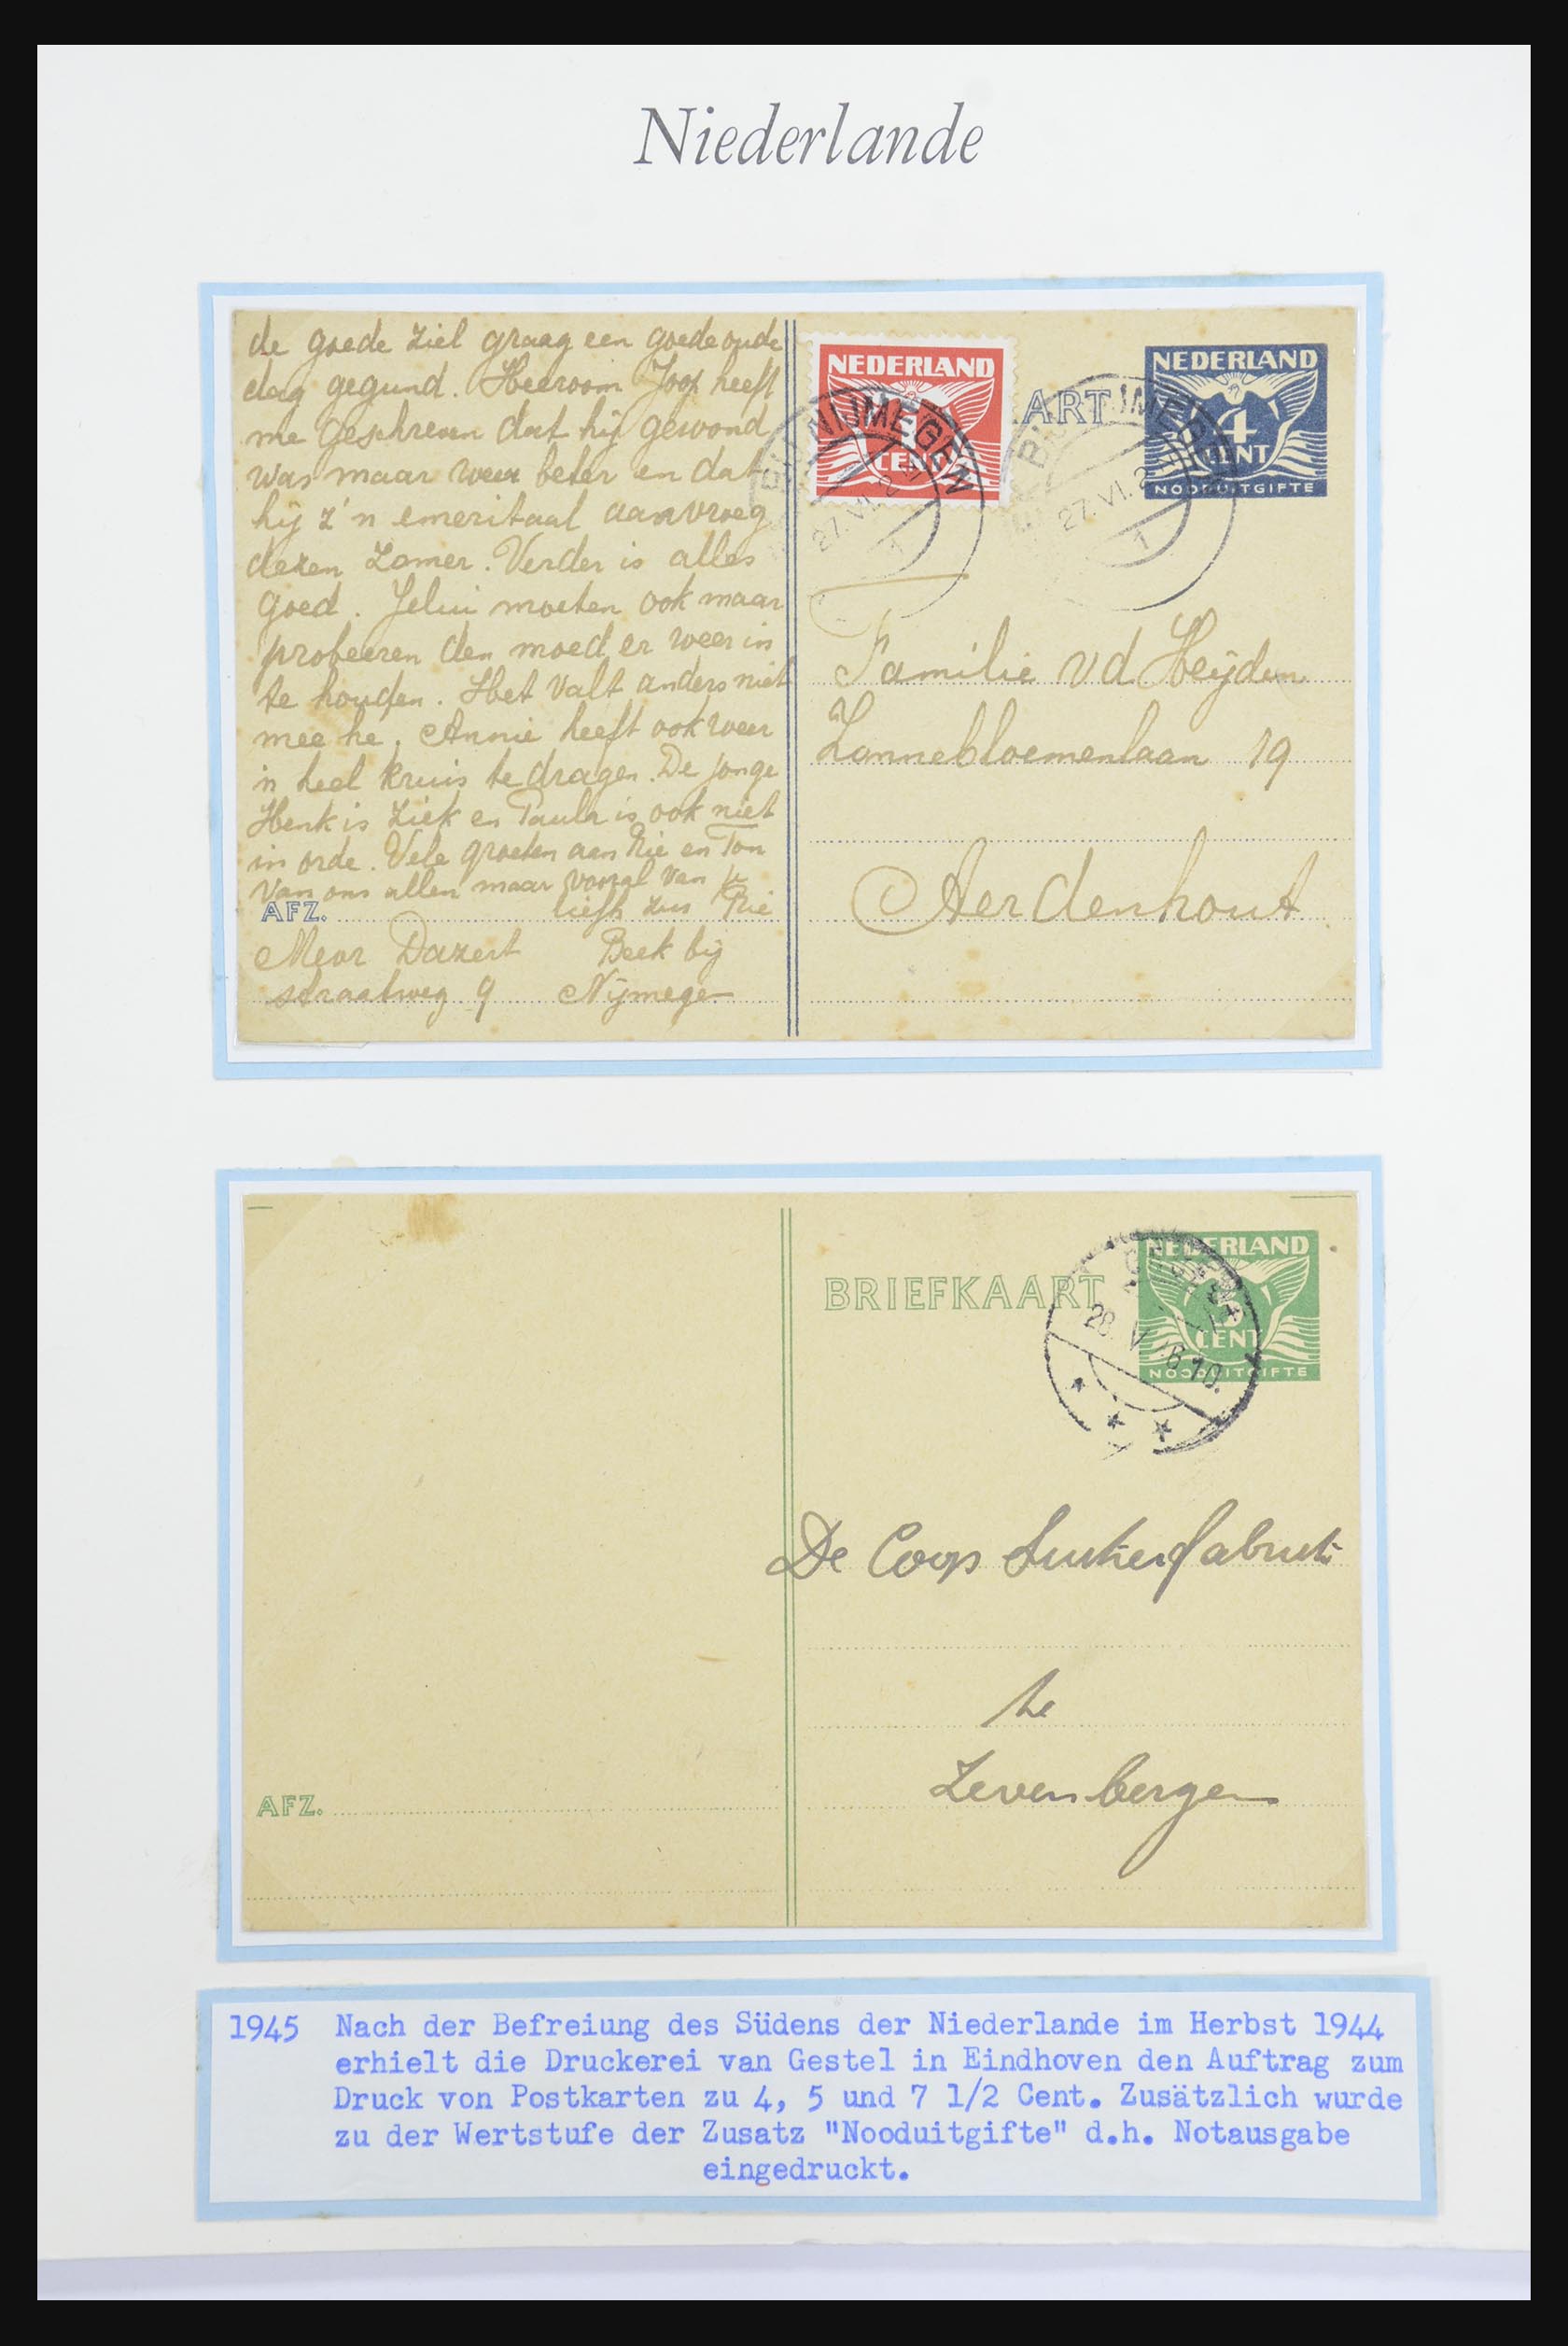 Niederlande
de goede ziel graag een goede oude
dag gegund. Heeroom Joop heeft
me geschreven dat hij gewond
was maar weer beter en dat
hij z'n emeritaat aanvroeg
dezen zomer. Verder is alles
goed. Jelui moeten ook maar
probeeren den moed er weer in
te houden. Het valt anders niet
mee he. Annie heeft ook weer
'n heel kruis te dragen. De jonge
Henk is ziek en Paula is ook niet
in orde. Vele groeten aan Rie en Ton
van ons allen maar vooral van je
liefh zus Rie
AFZ.
Mevr Dazert Beek bij
straatweg 9 Nijmegen
NEDERLAND
CENT
NIJMEGEN
27.VI.
1
ART
NEDERLAND
4
CENT
NOODUITGIFTE
27.VI.
1
Familie vd Heijden
Zonnebloemenlaan 19
Aerdenhout
BRIEFKAART
NEDERLAND
5
CENT
NOODUITGIFTE
28 V
AFZ.
De Coop Suikerfabriek
te
Zevenbergen
1945 Nach der Befreiung des Südens der Niederlande im Herbst 1944
erhielt die Druckerei van Gestel in Eindhoven den Auftrag zum
Druck von Postkarten zu 4, 5 und 7 1/2 Cent. Zusätzlich wurde
zu der Wertstufe der Zusatz "Nooduitgifte" d.h. Notausgabe
eingedruckt.